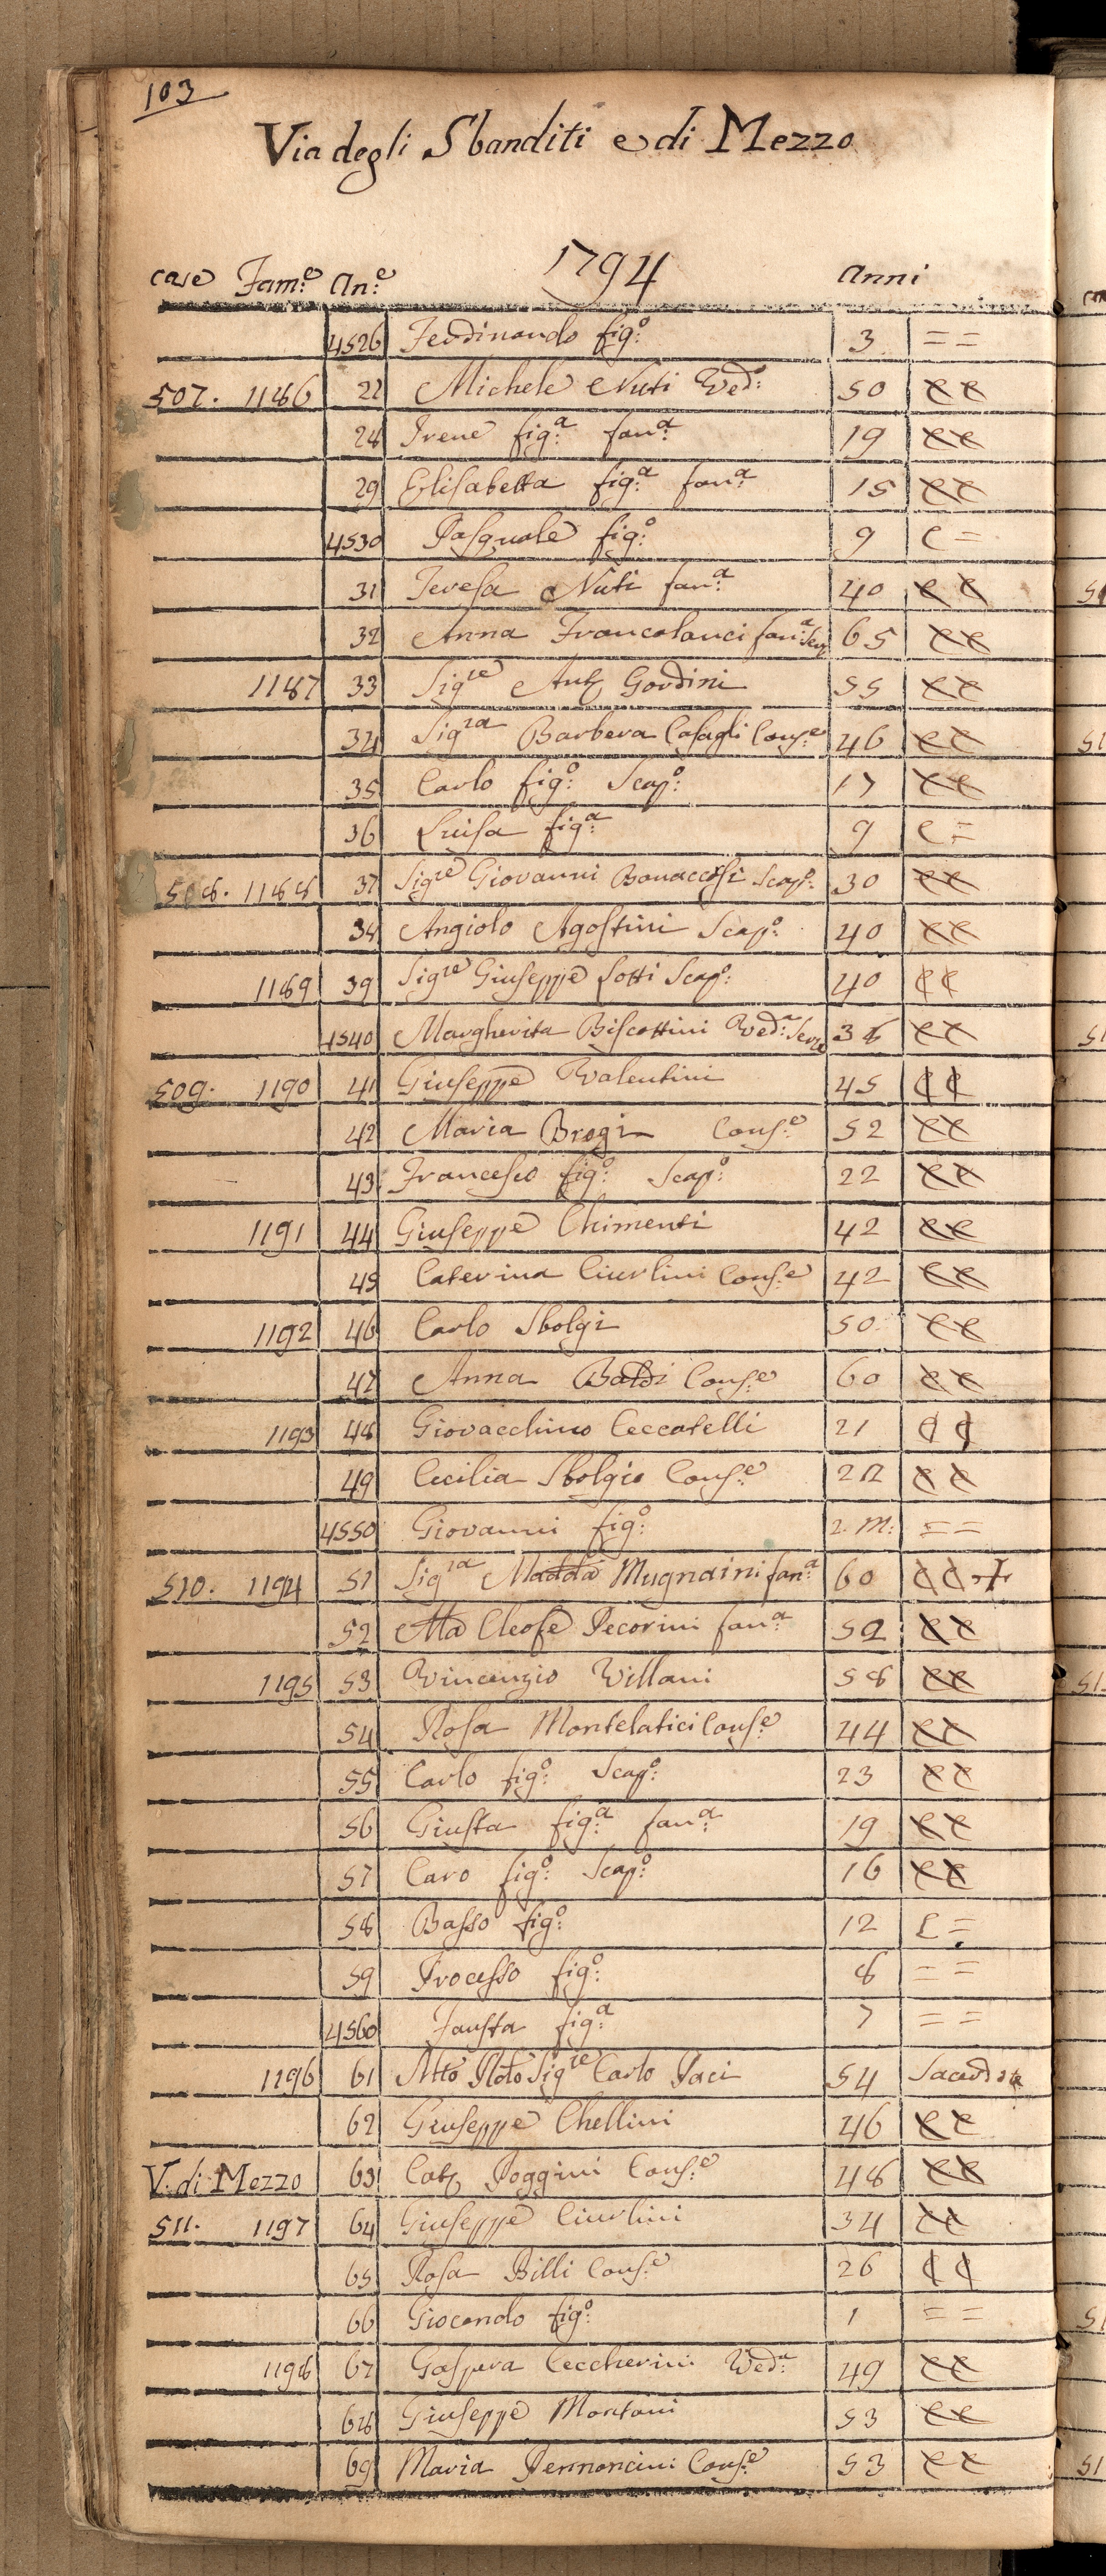 103
Via degli Sbanditi e di Mezzo
1794
case Fam.e An.e Anni
4526 Ferdinando fig.o 3 = =
507. 1186 27 Michele Nuti Ved.o 50 C C
28 Irene fig.a fan.a 19 C C
29 Elisabetta fig.a fan.a 15 C C
4530 Pasquale fig.o 9 C =
31 Teresa Nuti fan.a 40 C C
32 Anna Francolanci fan.a Serv 65 C C
1187 33 Sig.re Ant. Gordini 55 C C
34 Sig.ra Barbera Casagli Cons.e 46 C C
35 Carlo fig.o Scap.o 17 C C
36 Luisa fig.a 9 C =
508. 1188 37 Sig.re Giovanni Bonaccorsi Scap.o 30 C C
38 Angiolo Agostini Scap.o 40 C C
1189 39 Sig.re Giuseppe Lotti Scap.o 40 C C
4540 Margherita Biscottini Ved.a Serva 36 C C
509. 1190 41 Giuseppe Valentini 45 C C
42 Maria Brogi Cons.e 52 C C
43 Francesco fig.o Scap.o 22 C C
1191 44 Giuseppe Chimenti 42 C C
45 Caterina Ciurlini Cons.e 42 C C
1192 46 Carlo Sbolgi 50 C C
47 Anna Baldi Cons.e 60 C C
1193 48 Giovacchino Ceccatelli 21 C C
49 Cecilia Sbolgio Cons.e 22 C C
4550 Giovanni fig.o 2. M: = =
510. 1194 51 Sig.ra Madda Mugnaini fan.a 60 C C +
52 Ma Cleofe Pecorini fan.a 52 C C
1195 53 Vincenzio Villani 58 C C
54 Rosa Montelatici Cons.e 44 C C
55 Carlo fig.o Scap.o 23 C C
56 Giusta fig.a fan.a 19 C C
57 Caro fig.o Scap.o 16 C C
58 Basso fig.o 12 C =
59 Processo fig.o 8 = =
4560 Fausta fig.a 7 = =
1196 61 Mto Rdo Sig.re Carlo Paci 54 Sacerdote
62 Giuseppe Chellini 46 C C
V. di Mezzo 63 Cat. Poggini Cons.e 48 C C
511. 1197 64 Giuseppe Ciurlini 34 C C
65 Rosa Billi Cons.e 26 C C
66 Giocondo fig.o 1 = =
1198 67 Gaspera Ceccherini Ved.a 49 C C
68 Giuseppe Montani 53 C C
69 Maria Pennoncini Cons.e 53 C C